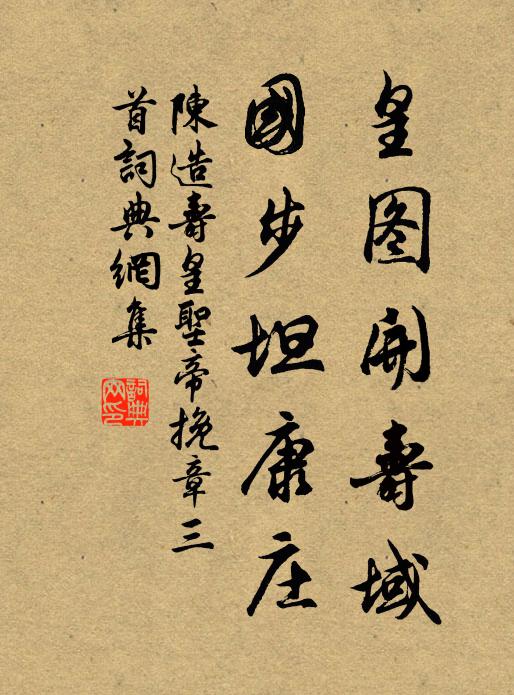 皇图開壽域
國步坦康庄
陳造壽皇聖帝挽章三
首詞典網集
詞典